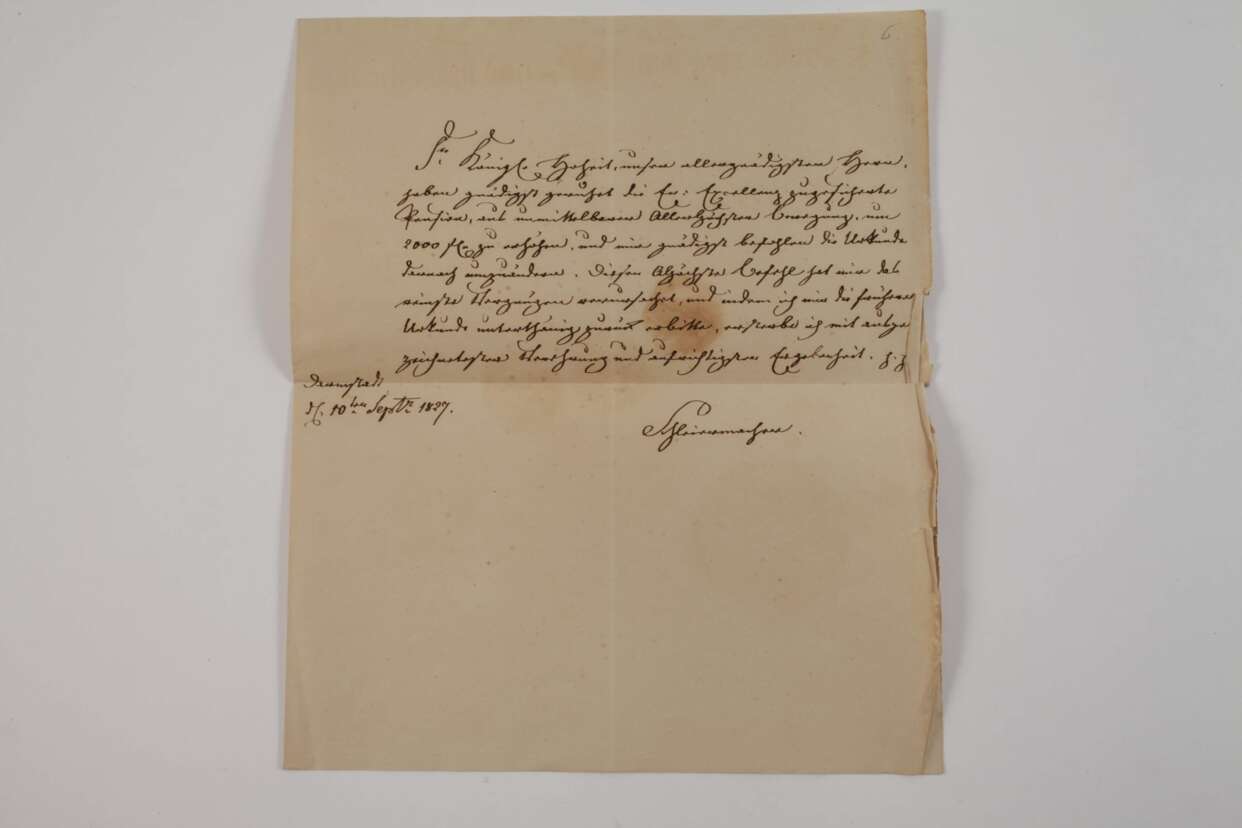 6.
Sr. Königl. Hoheit, unser allergnädigster Herr,
haben gnädigst geruhet die Ew: Excellenz zugesicherte
Pension, aus unmittelbarer Allerhöchster Bewegung, um
2000 fl. zu erhöhen, und mir gnädigst befohlen die Urkunde
darnach umzuändern. Dieser Allerhöchste Befehl hat mir das
reinste Vergnügen verursachet, und indem ich mir die frühere
Urkunde unterthänig zurück erbitte, ersterbe ich mit ausge
zeichnetester Verehrung und aufrichtigster Ergebenheit.
Darmstadt
d. 10ten Septr. 1827.
Schleiermacher.